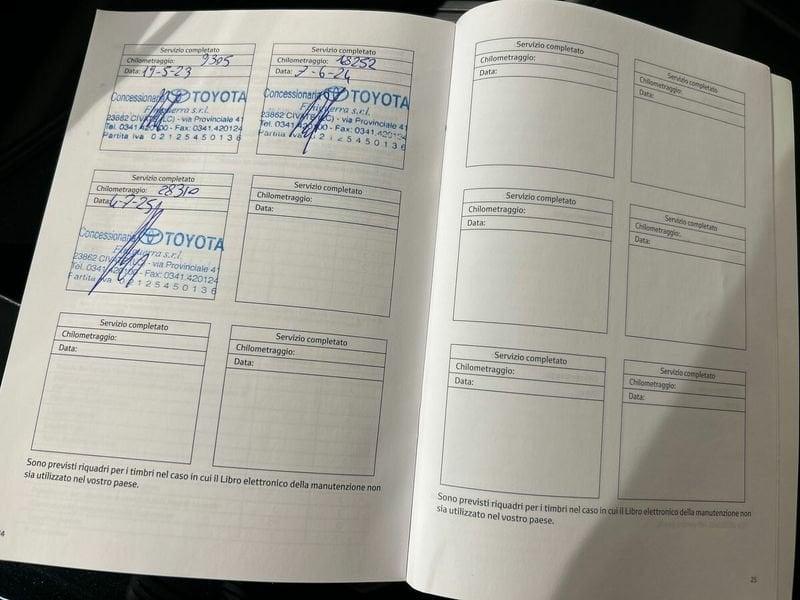 Servizio completato
Chilometraggio: 9305
Data: 19-5-23
Concessionaria TOYOTA
s.r.l.
23862 CIVATE (LC) - via Provinciale 41
Tel. 0341.420100 - Fax: 0341.420124
Partita Iva 0 2 1 2 5 4 5 0 1 3 6
Servizio completato
Chilometraggio: 18252
Data: 7-6-24
Concessionaria TOYOTA
s.r.l.
23862 CIVATE (LC) - via Provinciale 41
Tel. 0341.420100 - Fax: 0341.420124
Partita Iva 0 2 1 2 5 4 5 0 1 3 6
Servizio completato
Chilometraggio: 28310
Data: 4-7-25
Concessionaria TOYOTA
s.r.l.
23862 CIVATE (LC) - via Provinciale 41
Tel. 0341.420100 - Fax: 0341.420124
Partita Iva 0 2 1 2 5 4 5 0 1 3 6
Servizio completato
Chilometraggio:
Data:
Servizio completato
Chilometraggio:
Data:
Servizio completato
Chilometraggio:
Data:
Sono previsti riquadri per i timbri nel caso in cui il Libro elettronico della manutenzione non
sia utilizzato nel vostro paese.
Servizio completato
Chilometraggio:
Data:
Servizio completato
Chilometraggio:
Data:
Servizio completato
Chilometraggio:
Data:
Servizio completato
Chilometraggio:
Data:
Servizio completato
Chilometraggio:
Data:
Servizio completato
Chilometraggio:
Data:
Sono previsti riquadri per i timbri nel caso in cui il Libro elettronico della manutenzione non
sia utilizzato nel vostro paese.
25